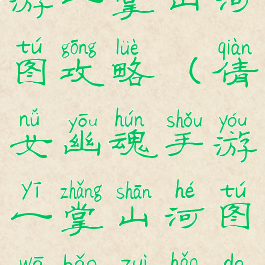 游一掌山河
tú gōng lüè qiàn
图攻略（倩
nǚ yōu hún shǒu yóu
女幽魂手游
yī zhǎng shān hé tú
一掌山河图